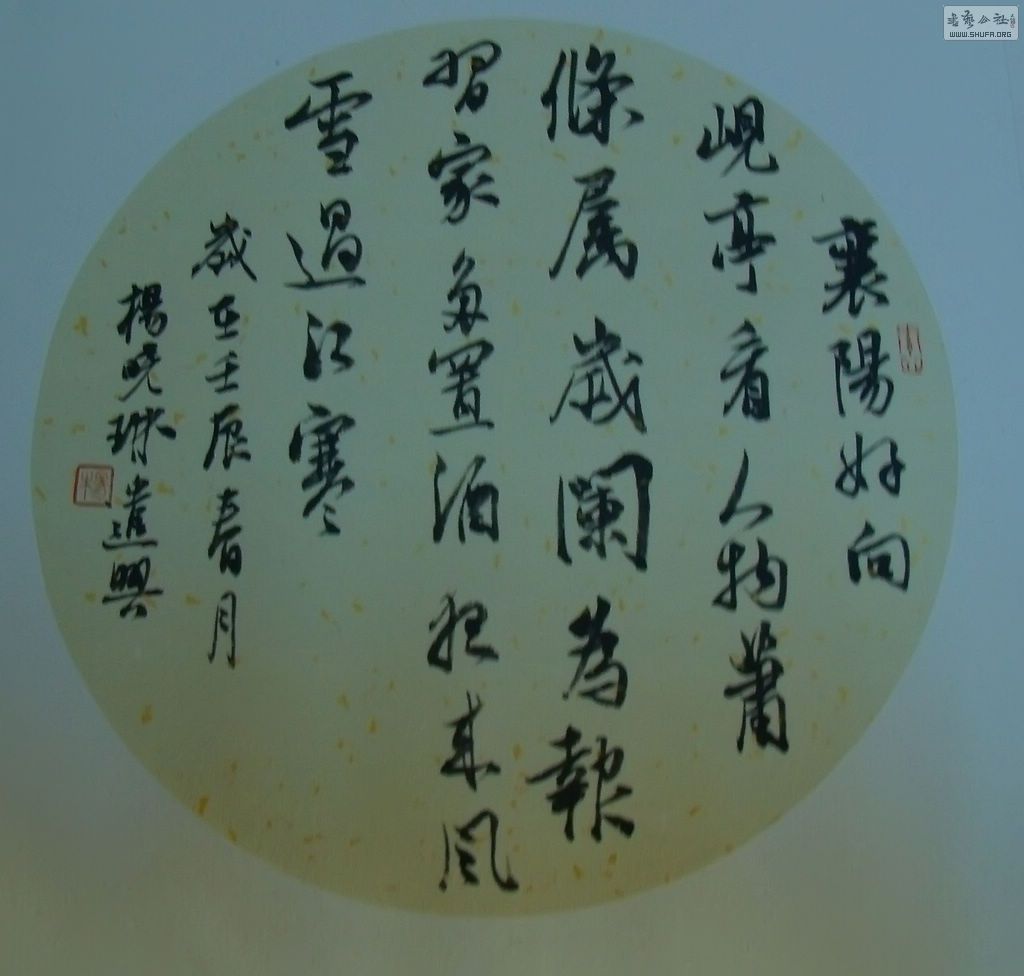 襄陽好向
峴亭看人物蕭
條属歲闌為報
習家多置酒夜来風
雪過江寒
歲在壬辰春月
楊晓琳遣興
書藝公社
WWW.SHUFA.ORG